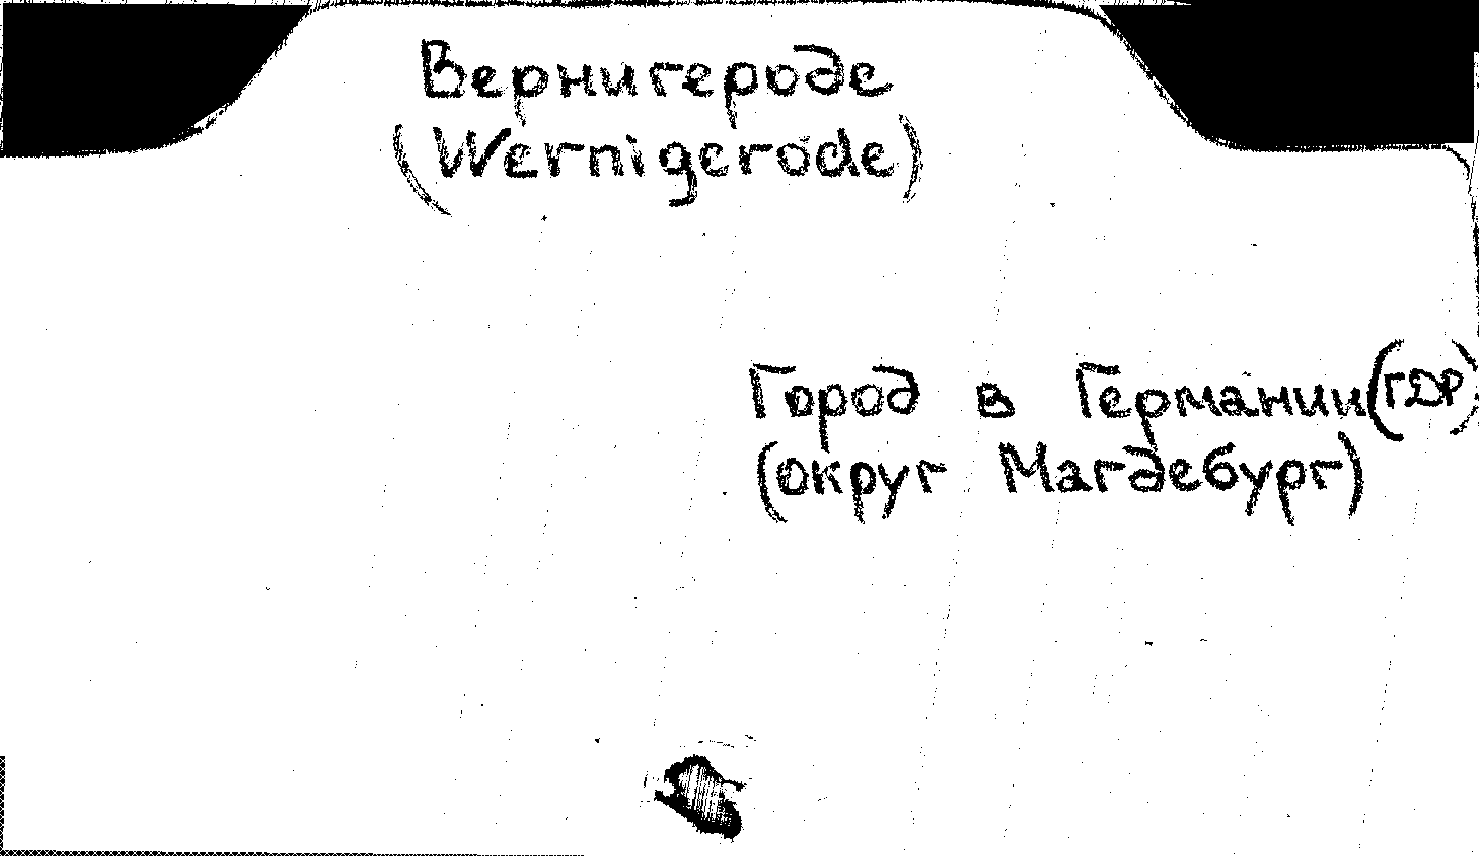 Вернигероде
(Wernigerode)
Город в Германии (ГДР)
(округ Магдебург)